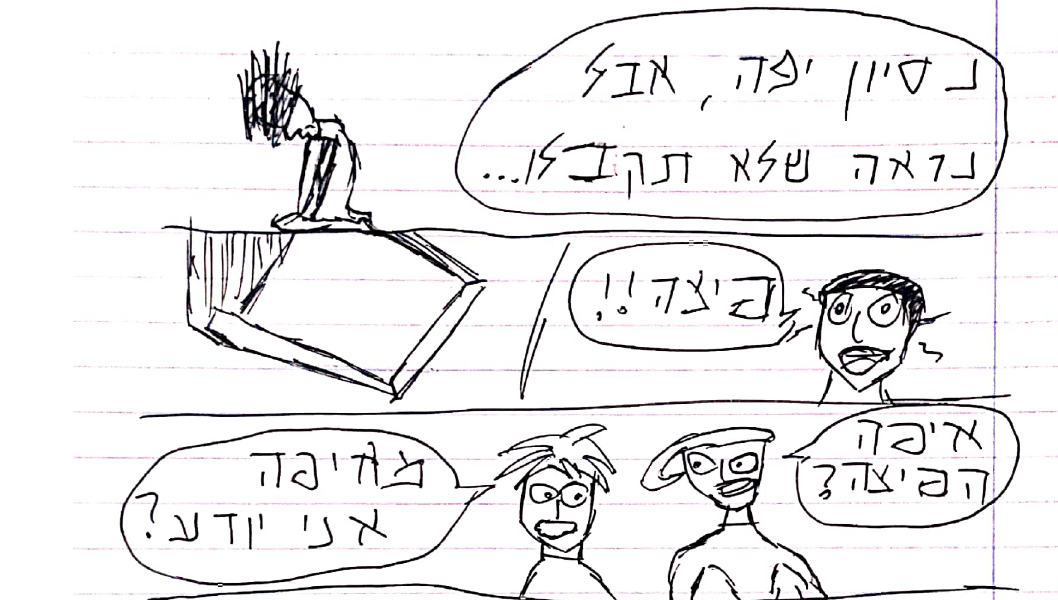 נסיון יפה, אבל
נראה שלא תקבלו...
פיצה!!
איפה
הפיצה?
מאיפה
אני יודע?